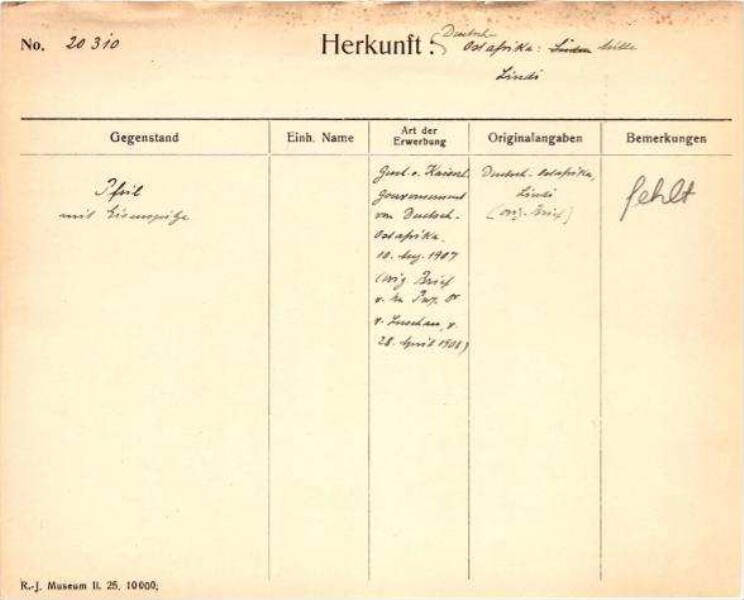 No. 20310
Herkunft: Deutsch-
Ostafrika:
Lindi
Gegenstand
Einh. Name
Art der
Erwerbung
Originalangaben
Bemerkungen
Pfeil
mit Eisenspitze
Gesch. v. Kaiserl.
Gouvernement
von Deutsch-
Ostafrika.
10. Aug. 1907
(orig. Brief
v. H. Prof. Dr.
v. Luschan, v.
28. April 1908)
Deutsch-Ostafrika,
Lindi
(orig. Brief)
fehlt
R.-J. Museum II. 25. 10000;